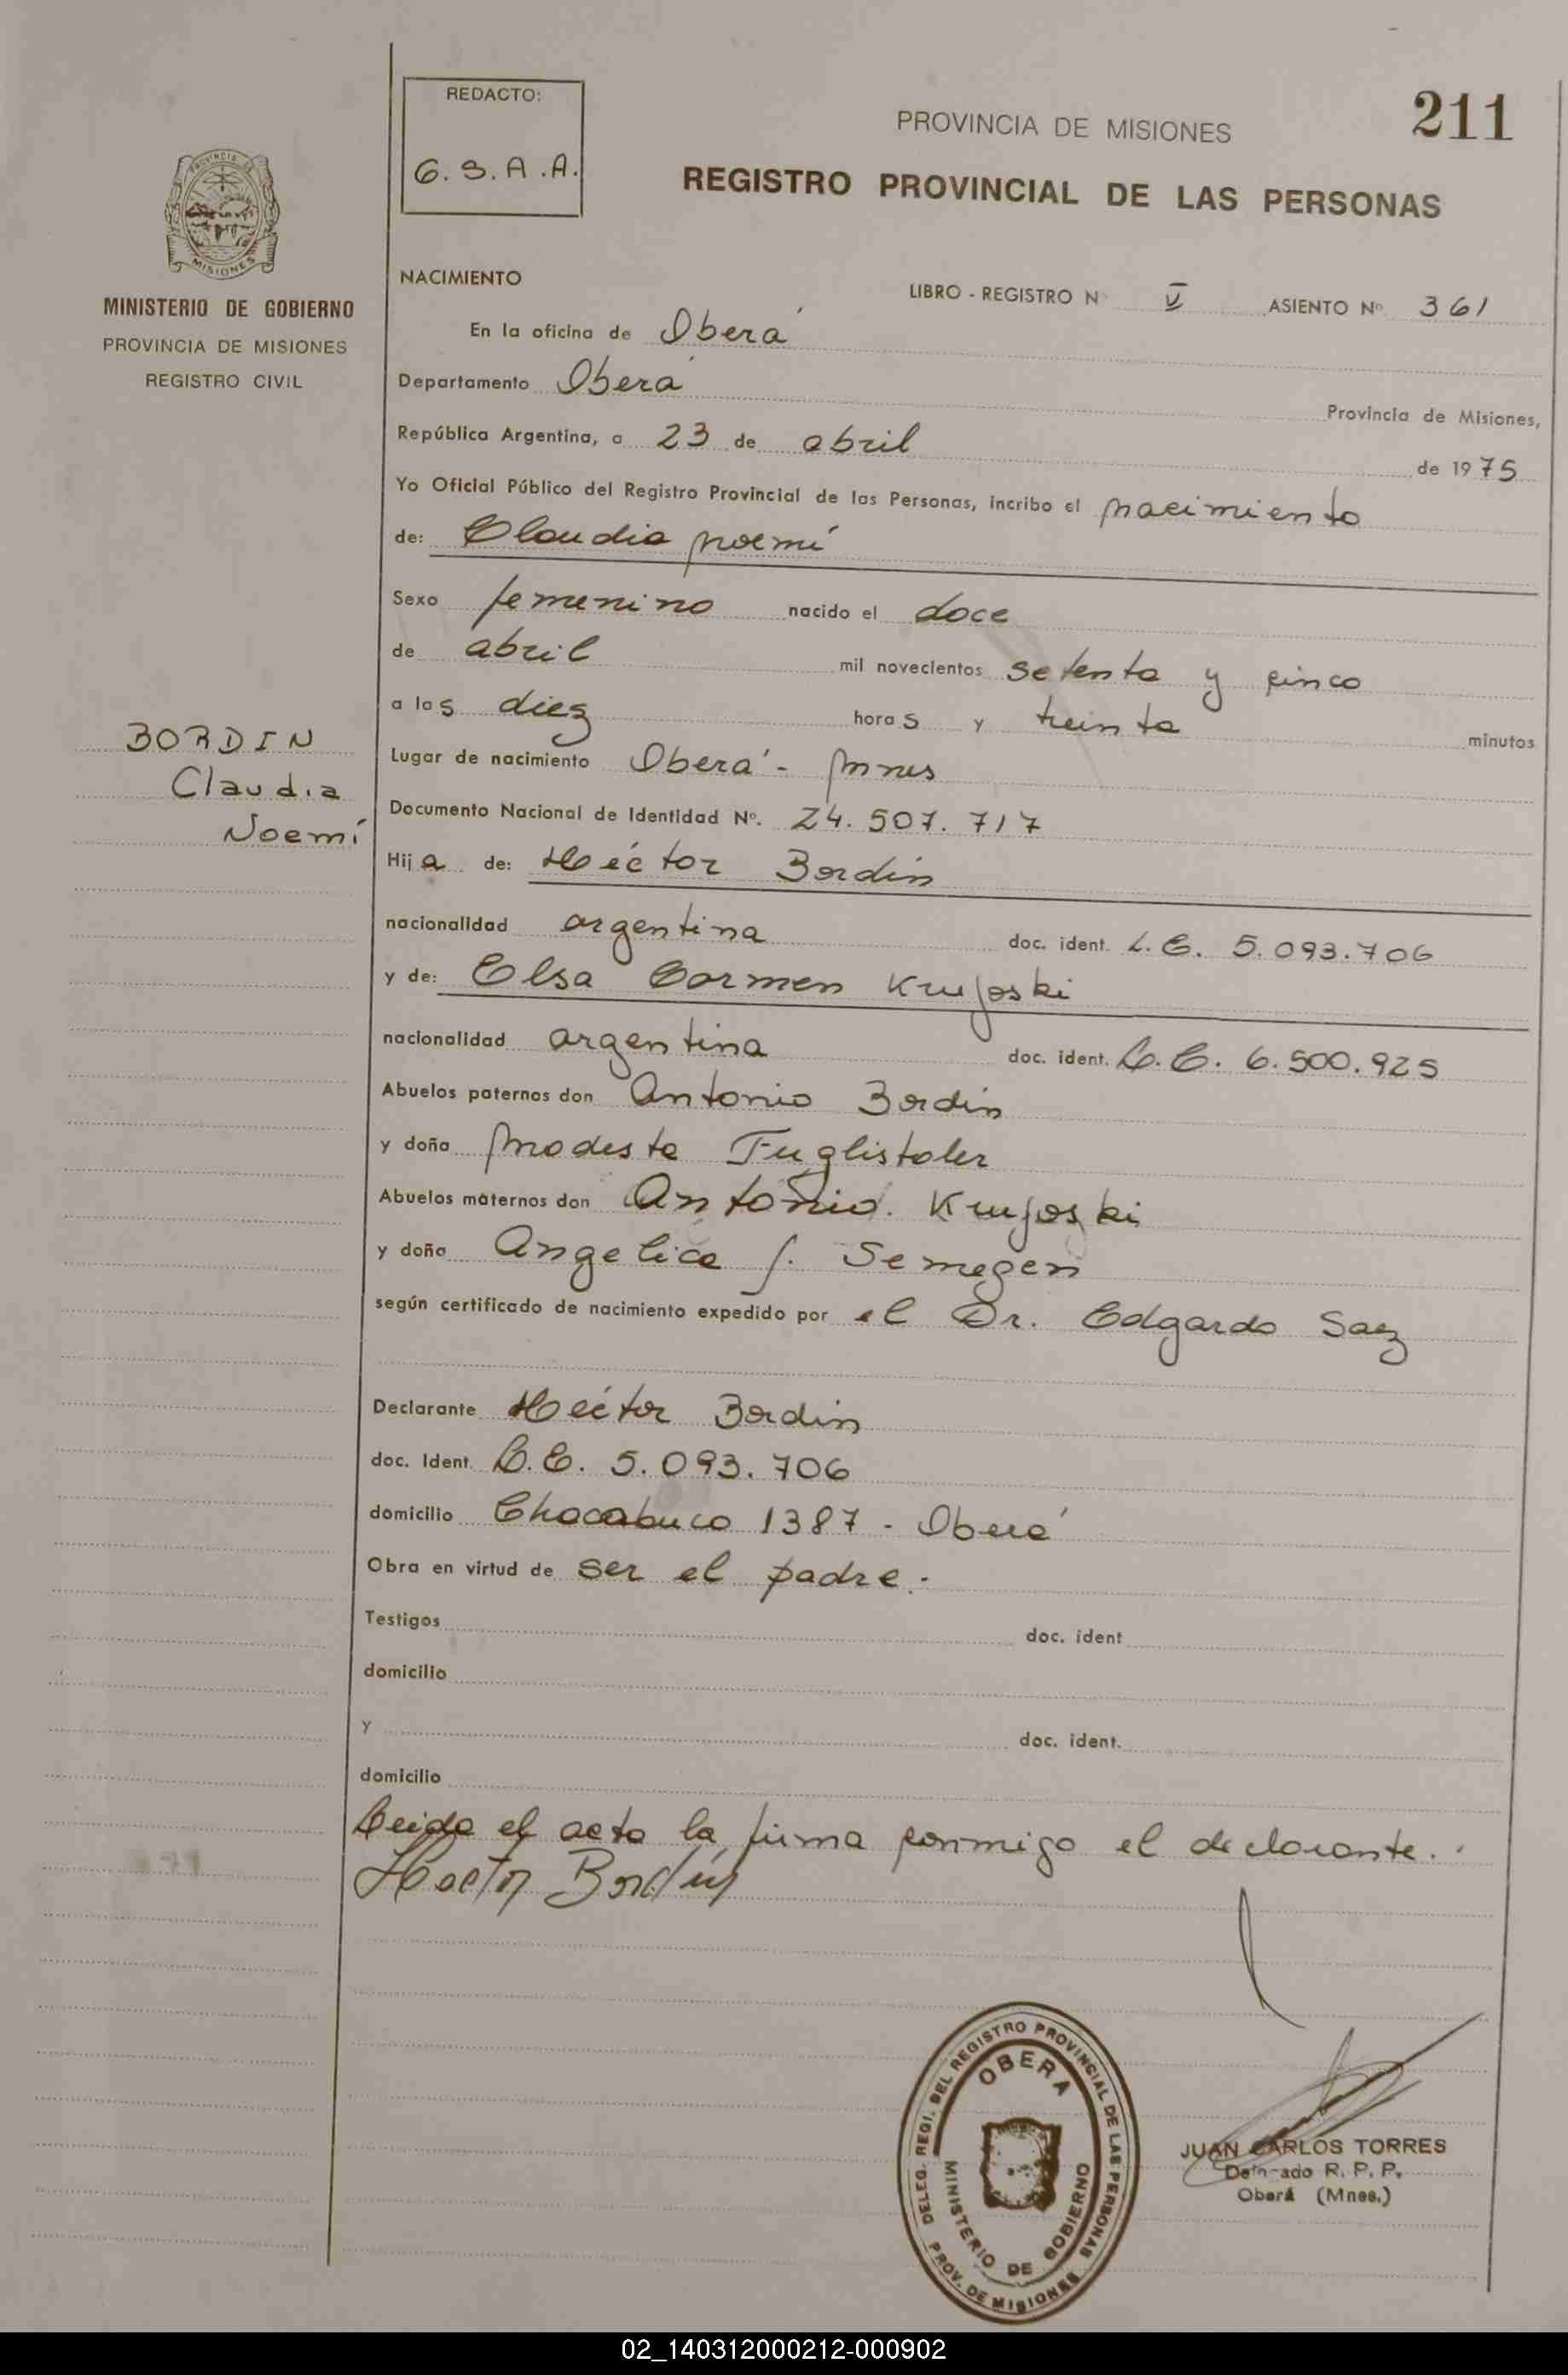 211
REDACTO:
G. S. A. A.
PROVINCIA DE MISIONES
REGISTRO PROVINCIAL DE LAS PERSONAS
PROVINCIA DE
MISIONES
MINISTERIO DE GOBIERNO
PROVINCIA DE MISIONES
REGISTRO CIVIL
NACIMIENTO
LIBRO - REGISTRO N° V ASIENTO Nº 361
En la oficina de Oberá
Departamento Oberá Provincia de Misiones,
República Argentina, a 23 de abril de 1975
Yo Oficial Público del Registro Provincial de las Personas, incribo el nacimiento
de: Claudia Noemí
Sexo femenino nacido el doce
de abril mil novecientos setenta y cinco
a las diez horas y treinta minutos
BORDIN
Claudia
Noemí
Lugar de nacimiento Oberá - Mnes
Documento Nacional de Identidad Nº. 24.507.717
Hija de: Héctor Bordín
nacionalidad argentina doc. ident. L.E. 5.093.706
y de: Elsa Carmen Krujoski
nacionalidad argentina doc. ident. L.C. 6.500.925
Abuelos paternos don Antonio Bordín
y doña Modesta Fuglistaler
Abuelos maternos don Antonio Krujoski
y doña Angelica J. Semegen
según certificado de nacimiento expedido por el Dr. Edgardo Saez
Declarante Héctor Bordín
doc. Ident. L.E. 5.093.706
domicilio Chacabuco 1387 - Oberá
Obra en virtud de ser el padre.-
Testigos doc. ident
domicilio
y doc. ident.
domicilio
Leida el acta la firma conmigo el declarante.
Hector Bordín
DELEG. REGI. DEL REGISTRO PROVINCIAL DE LAS PERSONAS
OBERA
MINISTERIO DE GOBIERNO
PROV. DE MISIONES
JUAN CARLOS TORRES
R. P. P.
Oberá (Mnes.)
02_140312000212-000902